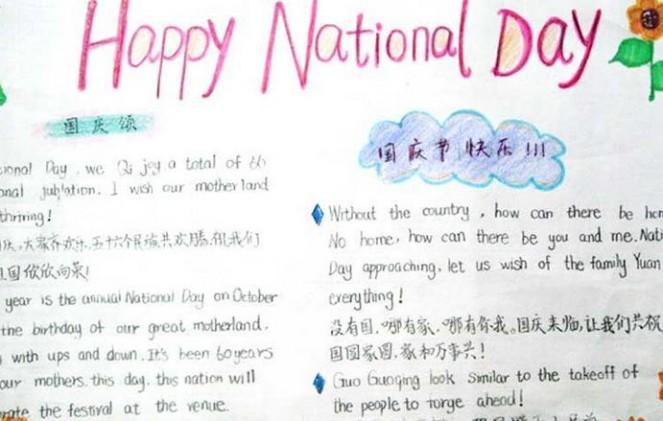 Happy National Day
国庆颂
Day, we Qi joy a total of 66
jubilation. I wish our motherland
thriving!
大家齐欢乐,五十六个民族共欢腾,祝我们
国欣欣向荣!
year is the annual National Day on October
the birthday of our great motherland.
with ups and down. It's been 60years
our mothers. this day. this nation will
the festival at the venue.
国庆节快乐!!!
Without the country, how can there be
No home, how can there be you and me.
Day approaching, let us wish of the family Yuan
everything!
没有国,哪有家,哪有你我。国庆来临,让我们共祝
国圆家圆,家和万事兴!
Guo Guoqing look similar to the takeoff of
the people to forge ahead!